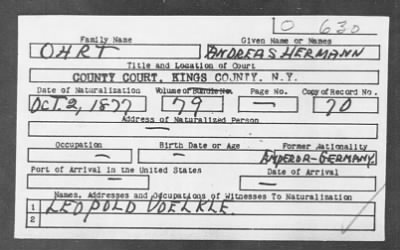 O 630
Family Name Given Name or Names
OHRT ANDREAS HERMANN
Title and Location of Court
COUNTY COURT, KINGS COUNTY, N.Y.
Date of Naturalization Volume or Bundle No. Page No. Copy of Record No.
Oct. 2, 1877 79 — 70
Address of Naturalized Person
—
Occupation Birth Date or Age Former Nationality
— — EMPEROR-GERMANY
Port of Arrival in the United States Date of Arrival
— —
Names, Addresses and Occupations of Witnesses To Naturalization
1 LEOPOLD VOELKLE.
2